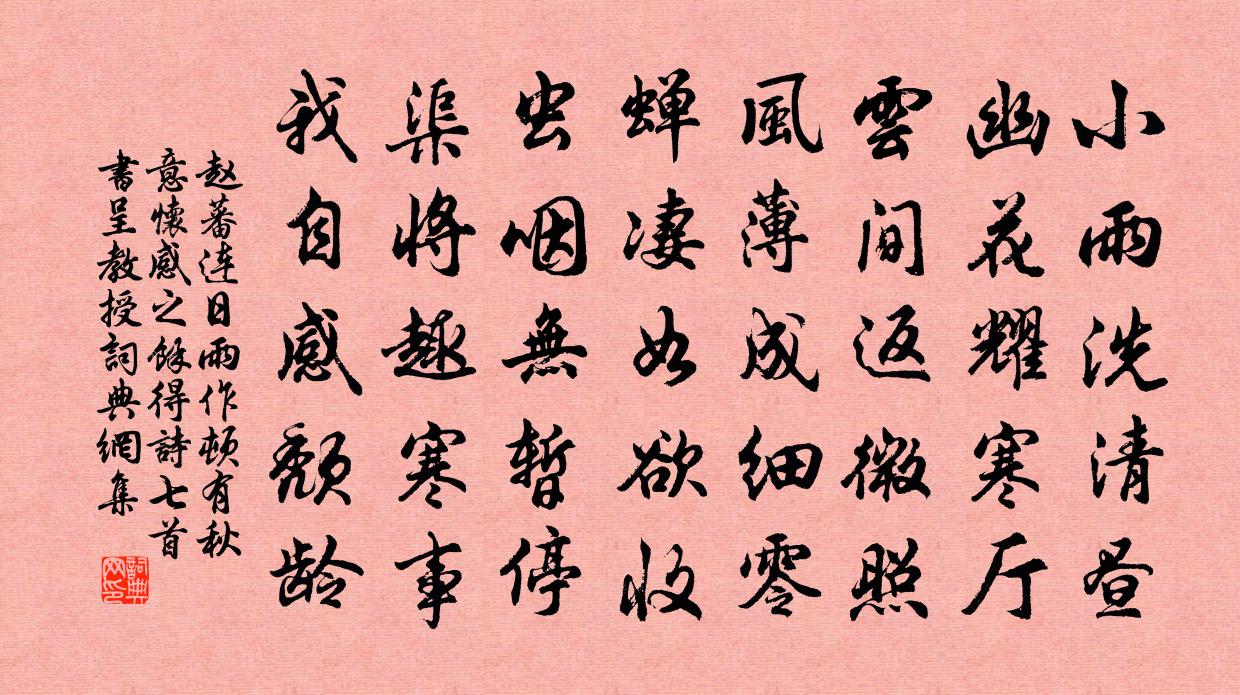 小雨洗清昼
幽花耀寒厅
雲间返微照
風薄成细零
蝉凄如欲收
虫咽無暂停
渠将趣寒事
我自感颓龄
赵蕃连日雨作顿有秋
意懷感之餘得詩七首
書呈教授詞典網集
詞典网印